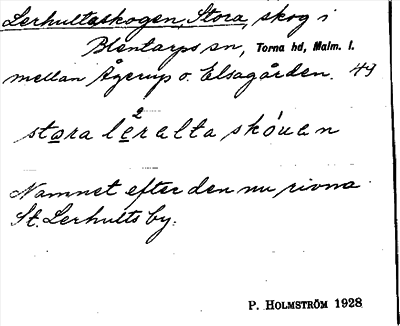 Lerhultaskogen, Stora, skog i
Blentarps sn, Torna hd, Malm. l.
mellan Ågerup o. Elsagården. 49
2
stora leralta skóuan
Namnet efter den nu rivna
St. Lerhults by.
P. HOLMSTRÖM 1928